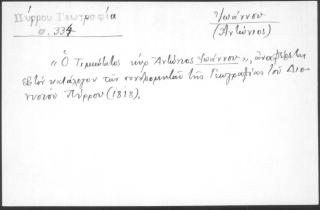 Πύρρου Γεωγραφία
σ. 334
Ἰωάννου
(Ἀντώνιος)
« Ὁ Τιμιώτατος κὺρ Ἀντώνιος Ἰωάννου », ἀναφέρεται
εἰς τὸν κατάλογον τῶν συνδρομητῶν τῆς Γεωγραφίας τοῦ Διο-
νυσίου Πύρρου (1818).